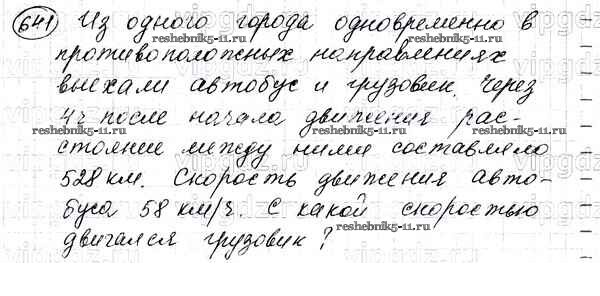 641) Из одного города одновременно в
противоположных направлениях
выехали автобус и грузовик. Через
4ч после начала движения рас-
стояние между ними составляло
528 км. Скорость движения авто-
буса 58 км/ч. С какой скоростью
двигался грузовик?
reshebnik5-11.ru
reshebnik5-11.ru
reshebnik5-11.ru
reshebnik5-11.ru
reshebnik5-11.ru
reshebnik5-11.ru